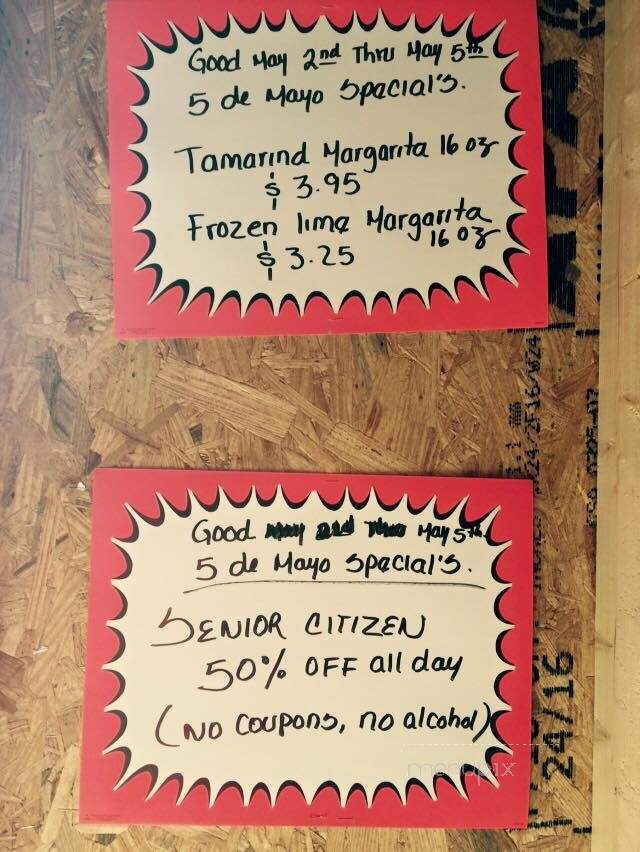 Good May 2nd Thru May 5th
5 de Mayo Spacial's.
Tamarind Margarita 16 oz
$ 3.95
Frozen lime Margarita
16 oz
$ 3.25
Good May 2nd Thru May 5th.
5 de Mayo Spacial's.
SENIOR CITIZEN
50% OFF all day
(NO COUPONS, no alcohol)
menupix
24/16